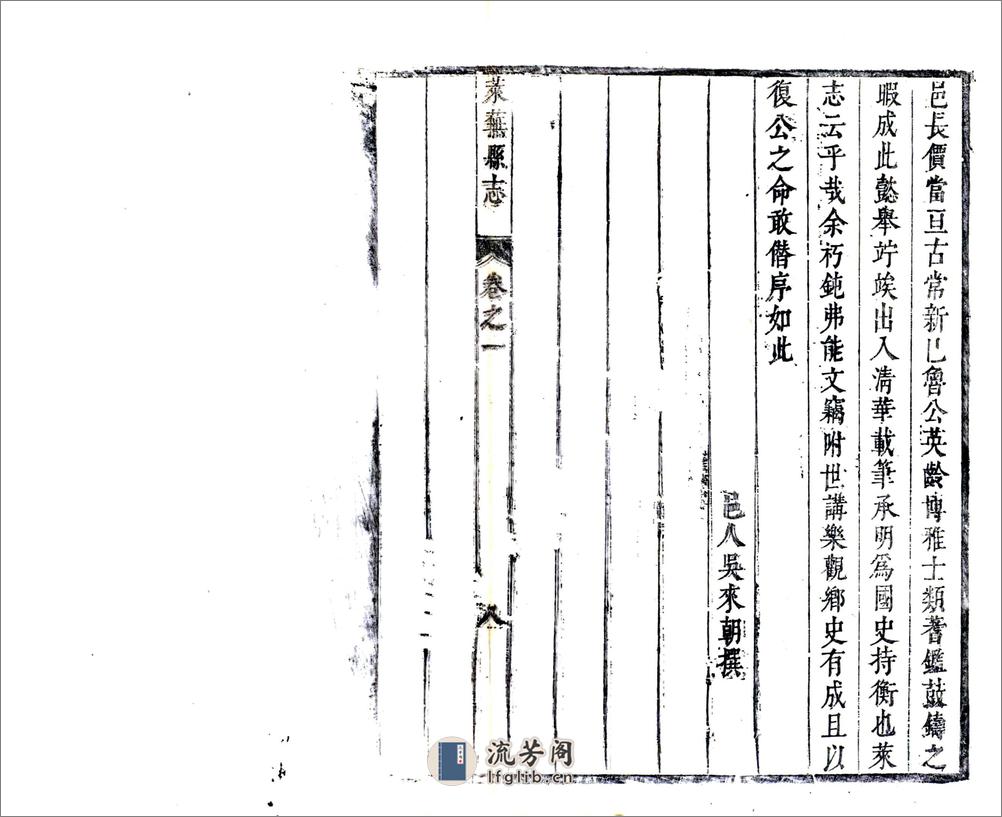 邑長價當亘古常新已魯公英齡博雅士類蓍鑑鼓鑄之
暇成此懿舉竚竢出入清華載筆承明爲國史持衡也萊
志云乎哉余朽鈍弗能文竊附世講樂觀鄉史有成且以
復公之命敢僭序如此
邑人吳來朝撰
萊蕪縣志
卷之一
八
流芳阁
lfglib.cn